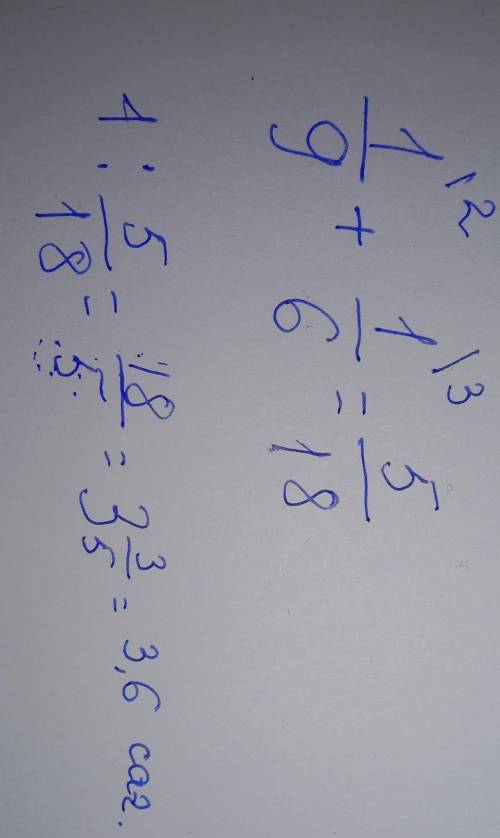 1/9 \2 + 1/6 \3 = 5/18
1 : 5/18 = 18/5 = 3 3/5 = 3,6 саг.